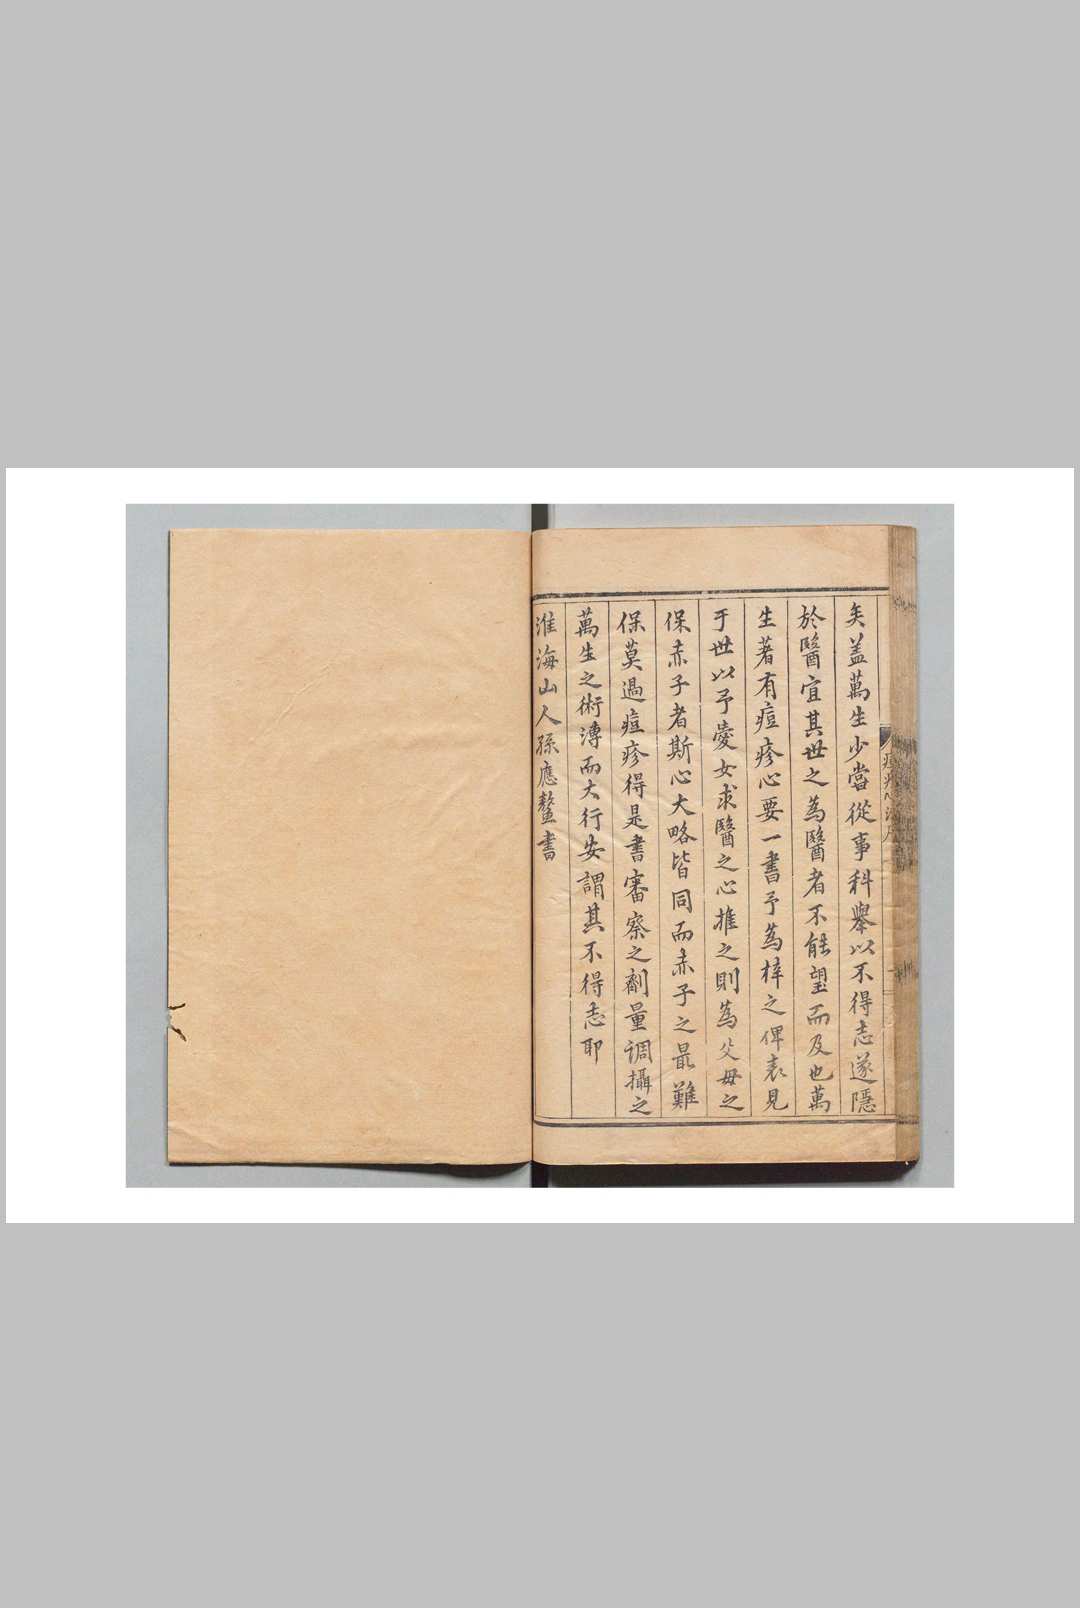 矣盖萬生少嘗從事科舉以不得志遂隱
於醫宜其世之為醫者不能望而及也萬
生著有痘疹心要一書予為梓之俾表見
于世以予愛女求醫之心推之則為父母之
保赤子者斯心大略皆同而赤子之最難
保莫過痘疹得是書審察之劑量調攝之
萬生之術溥而大行安謂其不得志耶
淮海山人孫應鰲書